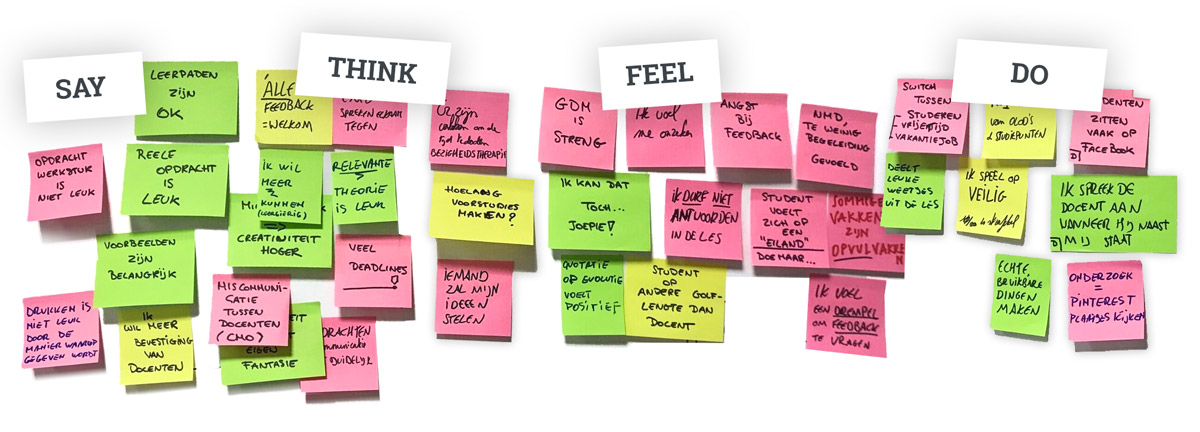 SAY
THINK
FEEL
DO
LEERPADEN
ZIJN
OK
OPDRACHT
WERKSTUK
IS
NIET LEUK
REELE
OPDRACHT
IS
LEUK
VOORBEELDEN
ZIJN
BELANGRIJK
DRUKKEN IS
NIET LEUK
DOOR DE
MANIER WAAROP
GEGEVEN WORDT
IK
WIL MEER
BEVESTIGING
VAN
DOCENTEN
ALLE
FEEDBACK
=WELKOM
SPREKEN ELKAAR
TEGEN
IK WIL
MEER
KUNNEN
CREATIVITEIT
HOGER
RELEVANTE
THEORIE
IS LEUK
VEEL
DEADLINES!
MISCOMMUNI-
CATIE
TUSSEN
DOCENTEN
(CMO)
EIGEN
FANTASIE
DRACHTEN
DUIDELIJK
zijn
om de
tijd te doden
BEZIGHEIDSTHERAPIE
HOELANG
VOORSTUDIES
MAKEN?
IEMAND
ZAL MIJN
IDEEEN
STELEN
GDM
IS
STRENG
Ik voel
me onzeker
ANGST
BIJ
FEEDBACK
NMD,
TE WEINIG
BEGELEIDING
GEVOELD
IK KAN DAT
TOCH...
JOEPIE!
IK DURF NIET
ANTWOORDEN
IN DE LES
STUDENT
VOELT
ZICH OP
EEN
"EILAND"
DOE MAAR...
SOMMIGE
VAKKEN
ZIJN
OPVULVAKKEN
QUOTATIE
OP EVOLUTIE
VOELT
POSITIEF
STUDENT
OP
ANDERE GOLF-
LENGTE DAN
DOCENT
IK VOEL
EEN DREMPEL
OM FEEDBACK
TE VRAGEN
SWITCH
TUSSEN
- STUDEREN
- VRIJETIJD
- VAKANTIEJOB
van OLOD's
& STUDIEPUNTEN
DENTEN
ZITTEN
VAAK OP
FACEBOOK
DEELT
LEUKE
WEETJES
UIT DE LES
IK SPEEL OP
VEILIG
IK SPREEK DE
DOCENT AAN
WANNEER HIJ NAAST
MIJ STAAT
ECHTE,
BRUIKBARE
DINGEN
MAKEN
ONDERZOEK
=
PINTEREST
PLAATJES KIJKEN